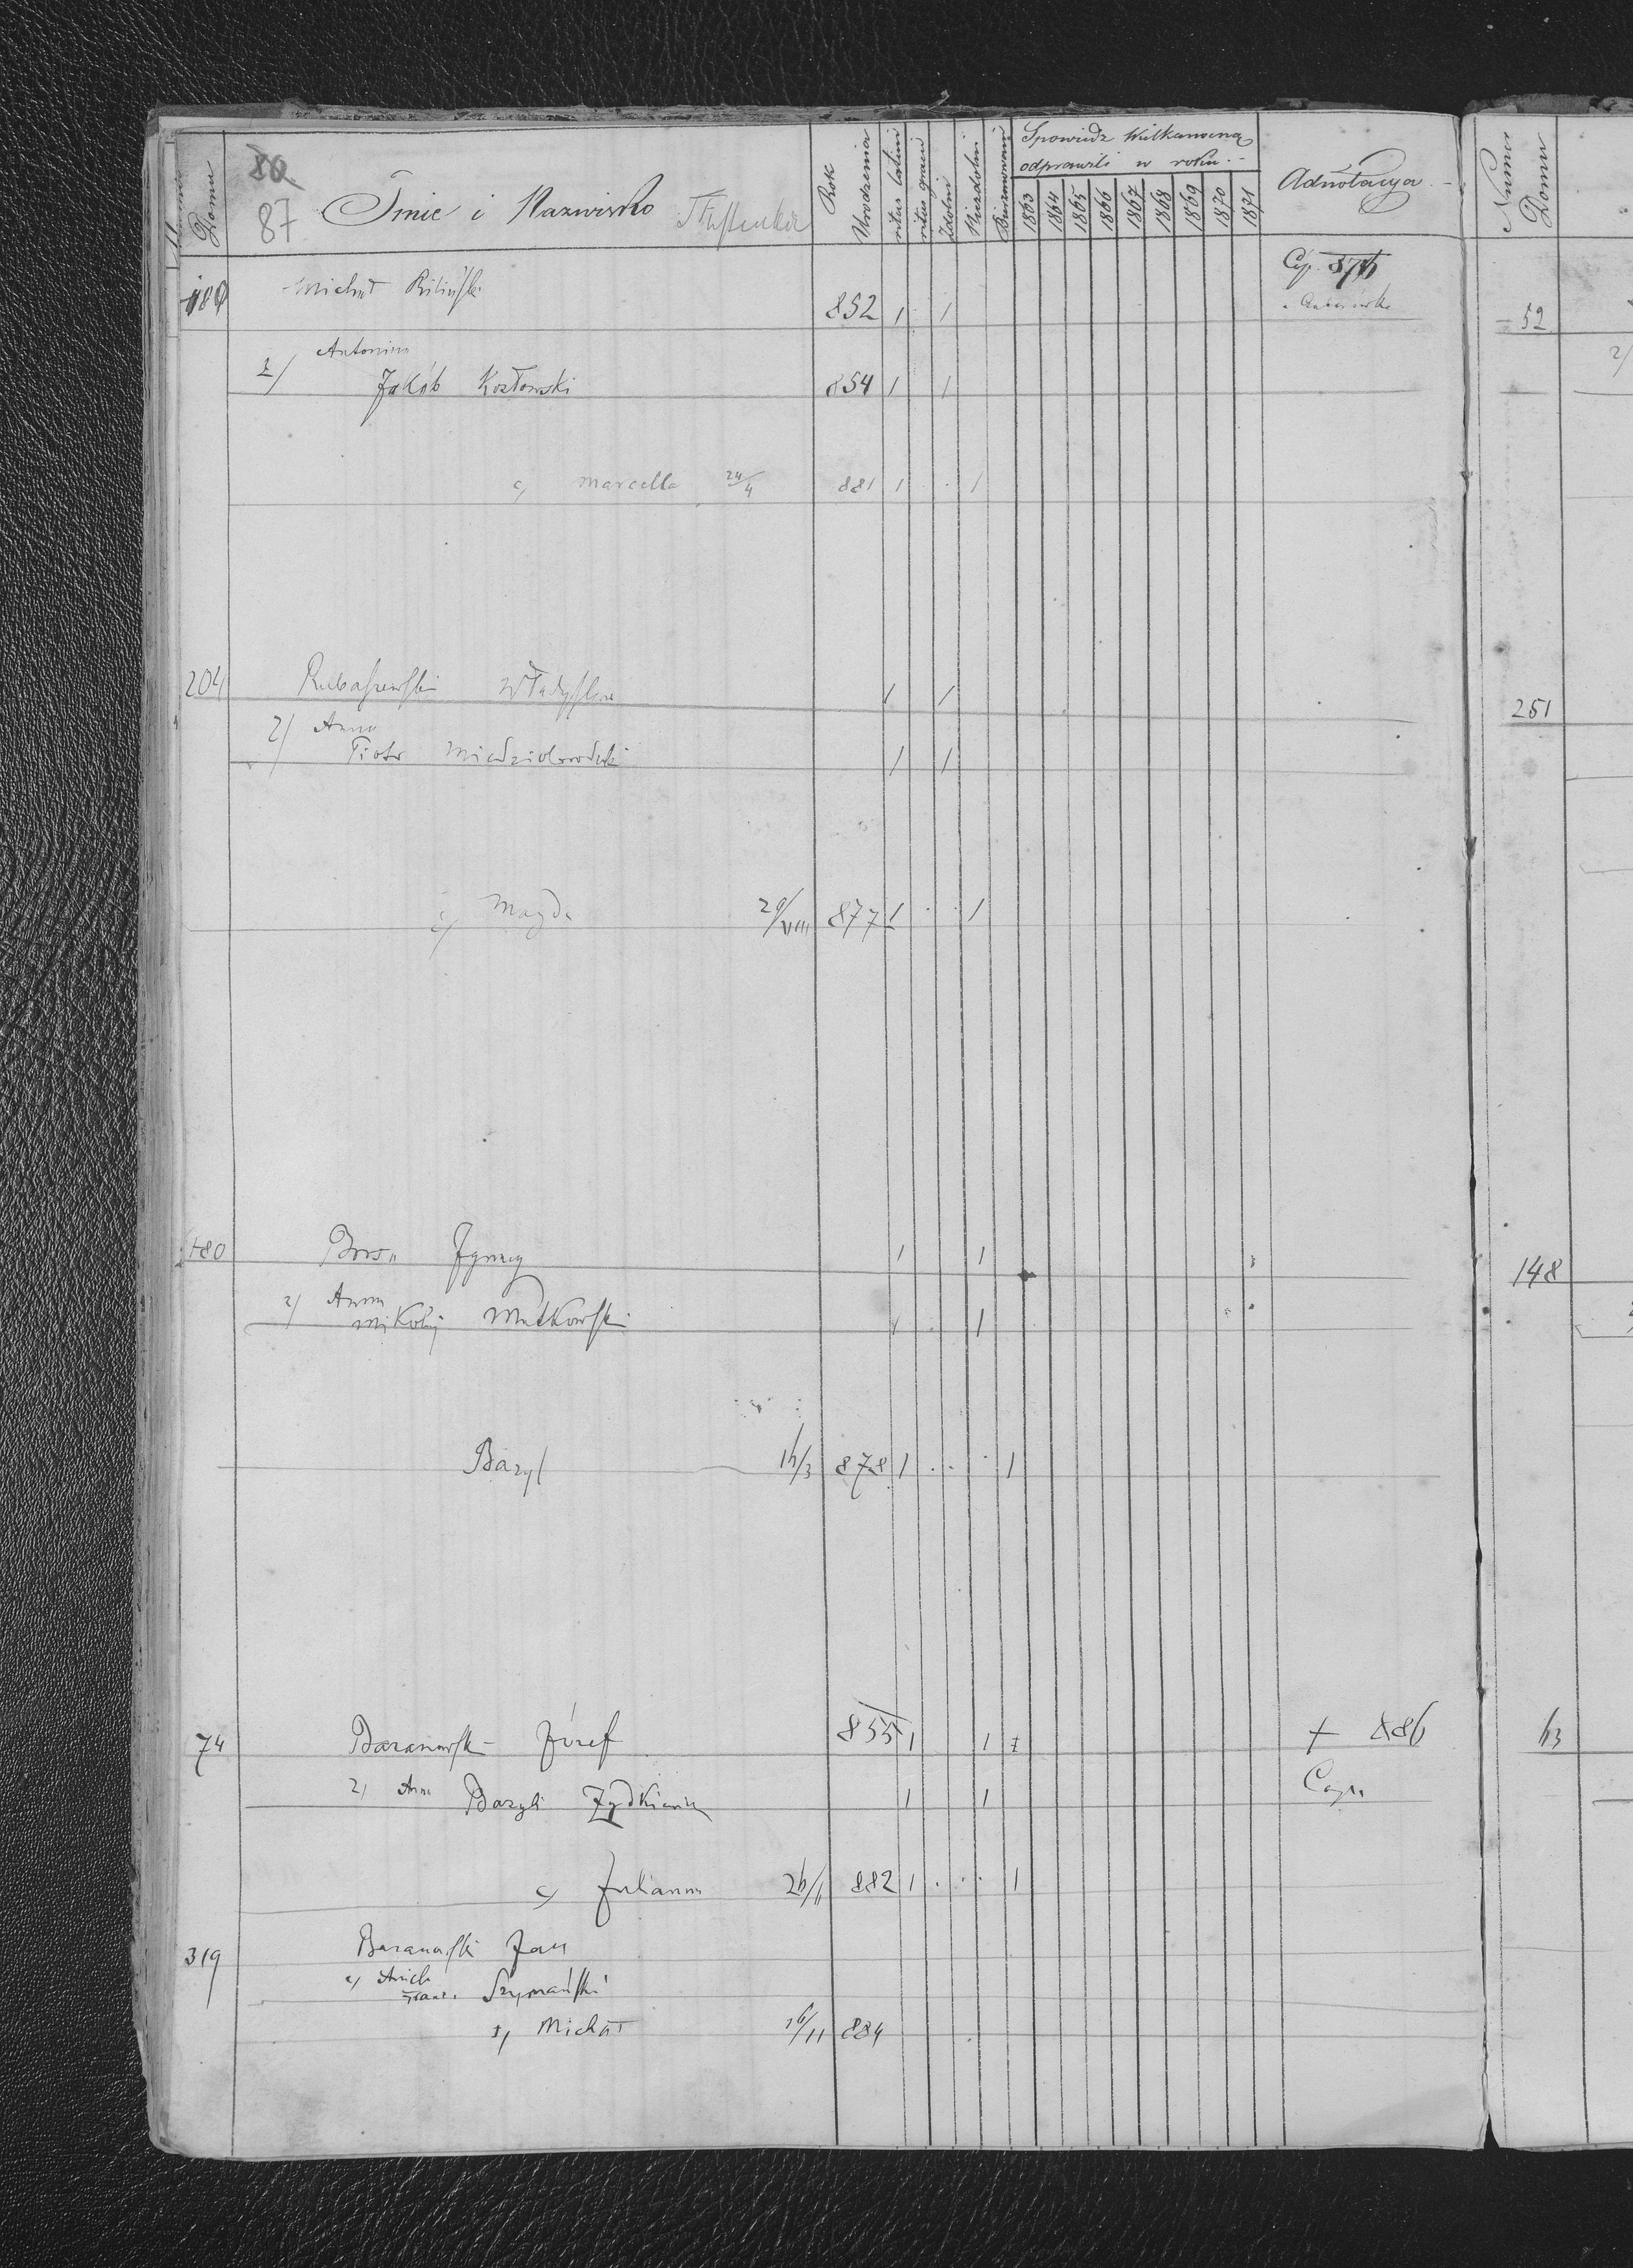 Numer Domu
80
87 Imie i Nazwisko Tłustenkie
Rok Urodzenia
ritus latini
ritus graeci
Zdolni
Niezdolni
Bierzmowani
Spowiedz Wielkanocną
odprawili w roku
1863 1864 1865 1866 1867 1868 1869 1870 1871
Adnotacya
Numer Domu
180 Michał Biliński 852 1 1 Cop. 876
52
2/ Antonina
Jakób Kozłowski 854 1 1
2/
c, Marcella 24/4 881 1 1
204 Rubaszewski Władysław 1 1
251
2/ Anna
Piotr 1 1
c, Magda 877 1 1
180 Ignacy 1 1
148
2/ Anna
Mikołaj Mutkowski 1 1
Bazyl 16/3 878 1 1
74 Baranowski Józef 855 1 1 + 886
63
2, Anna Bazyli Żydkiewicz 1 1
c, Julianna 26/11 882 1 1
319 Baranowski Jan
Szymański
1, Michał 16/11 884